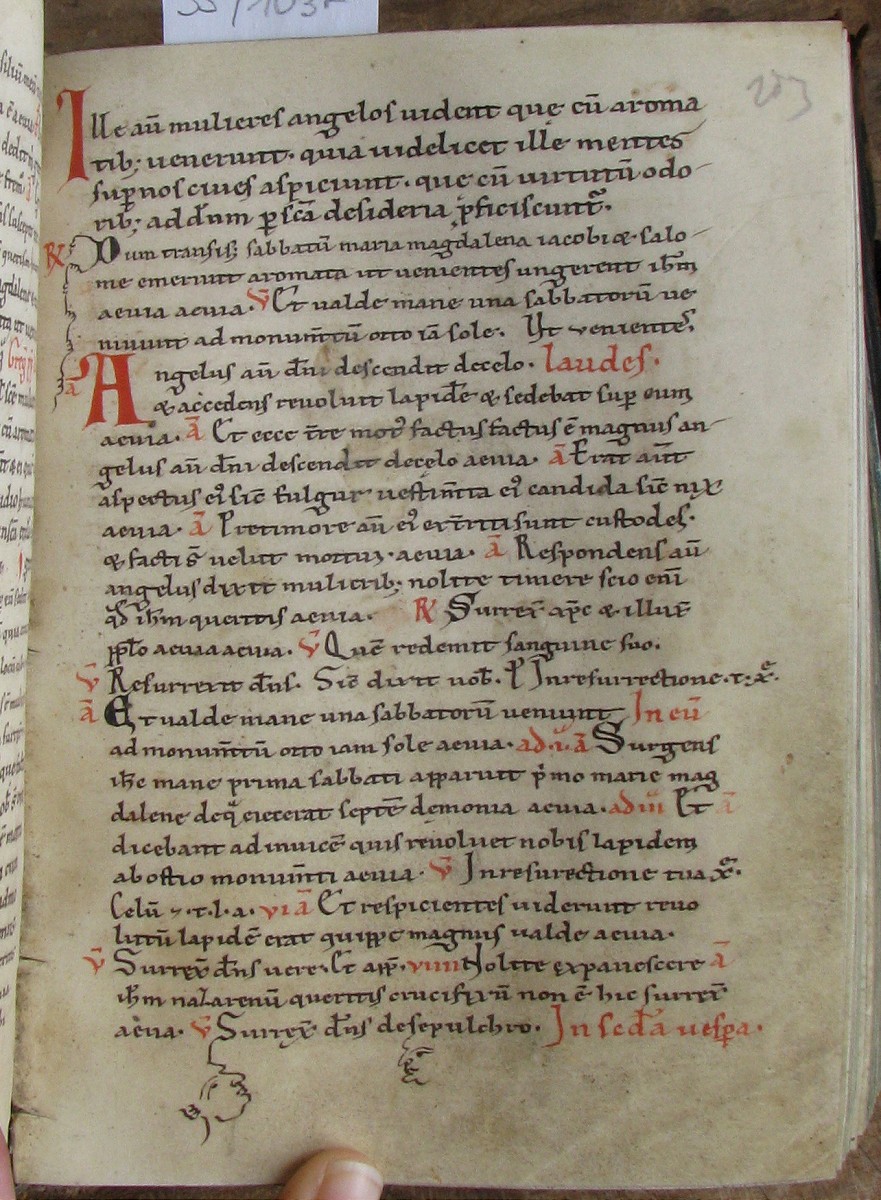 Ille aū mulieres angelos uident que cū aroma
tib; uenerunt. quia uidelicet ille mentes
sup̄nos ciues aspiciunt. que cū uirtutū odo
rib; ad dn̄m p sc̄a desideria p̄ficiscunt̄.
R̸ Dum transiss; sabbatū maria magdalena iacobi & salo
me emerunt aromata ut uenientes ungerent ihm̄
aeuia aeuia. V̄ Et ualde mane una sabbatorū ue
niunt ad monum̄tū orto iā sole. Ut uenientes.
ā Angelus aū dn̄i descendit decelo. laudes.
& accedens reuoluit lapidē & sedebat sup eum
aeuia. ā Et ecce t̄re mot᷒ factus factus ē magnus an
gelus aū dn̄i descendit decelo aeuia. ā Erat aūt
aspectus ei᷒ sic̄ fulgur uestim̄ta ei᷒ candida sic̄ nix
aeuia. ā Pretimore aū ei᷒ ext̄riti sunt custodes.
& facti s̄ uelut mortui. aeuia. ā Respondens aū
angelus dixit mulierib; nolite timere scio eni
qd̄ ihm̄ queritis aeuia. R̸ Surrex̄ xp̄c & illux̄
pplo aeuia aeuia. V̄ Quē redemit sanguine suo.
V̄ Resurrexit dn̄s. Sic̄ dixit uob̄. P̄ Inresurrectione. t. x̄e.
ā Et ualde mane una sabbatorū ueniunt In eū
ad monum̄tū orto iam sole aeuia. ad.i.ā Surgens
ihc̄ mane prima sabbati apparuit p̄mo marie mag
dalene deq̄ eiecerat septē demonia aeuia. ad iii Et ā
dicebant adinuicē quis reuoluet nobis lapidem
ab ostio monum̄ti aeuia. V̄ Inresurectione tua x̄e.
Celū & . t. l. a. vi ā Et respicientes uiderunt reuo
lutū lapidē erat quippe magnus ualde aeuia.
V̄ Surrex̄ dn̄s uere. Et app̄. viiii Nolite expauescere ā
ihm̄ nazarenū queritis crucifixū non ē hic surrex̄
aeuia. V̄ Surrex̄ dn̄s desepulchro. In scd̄a uesp̄a.